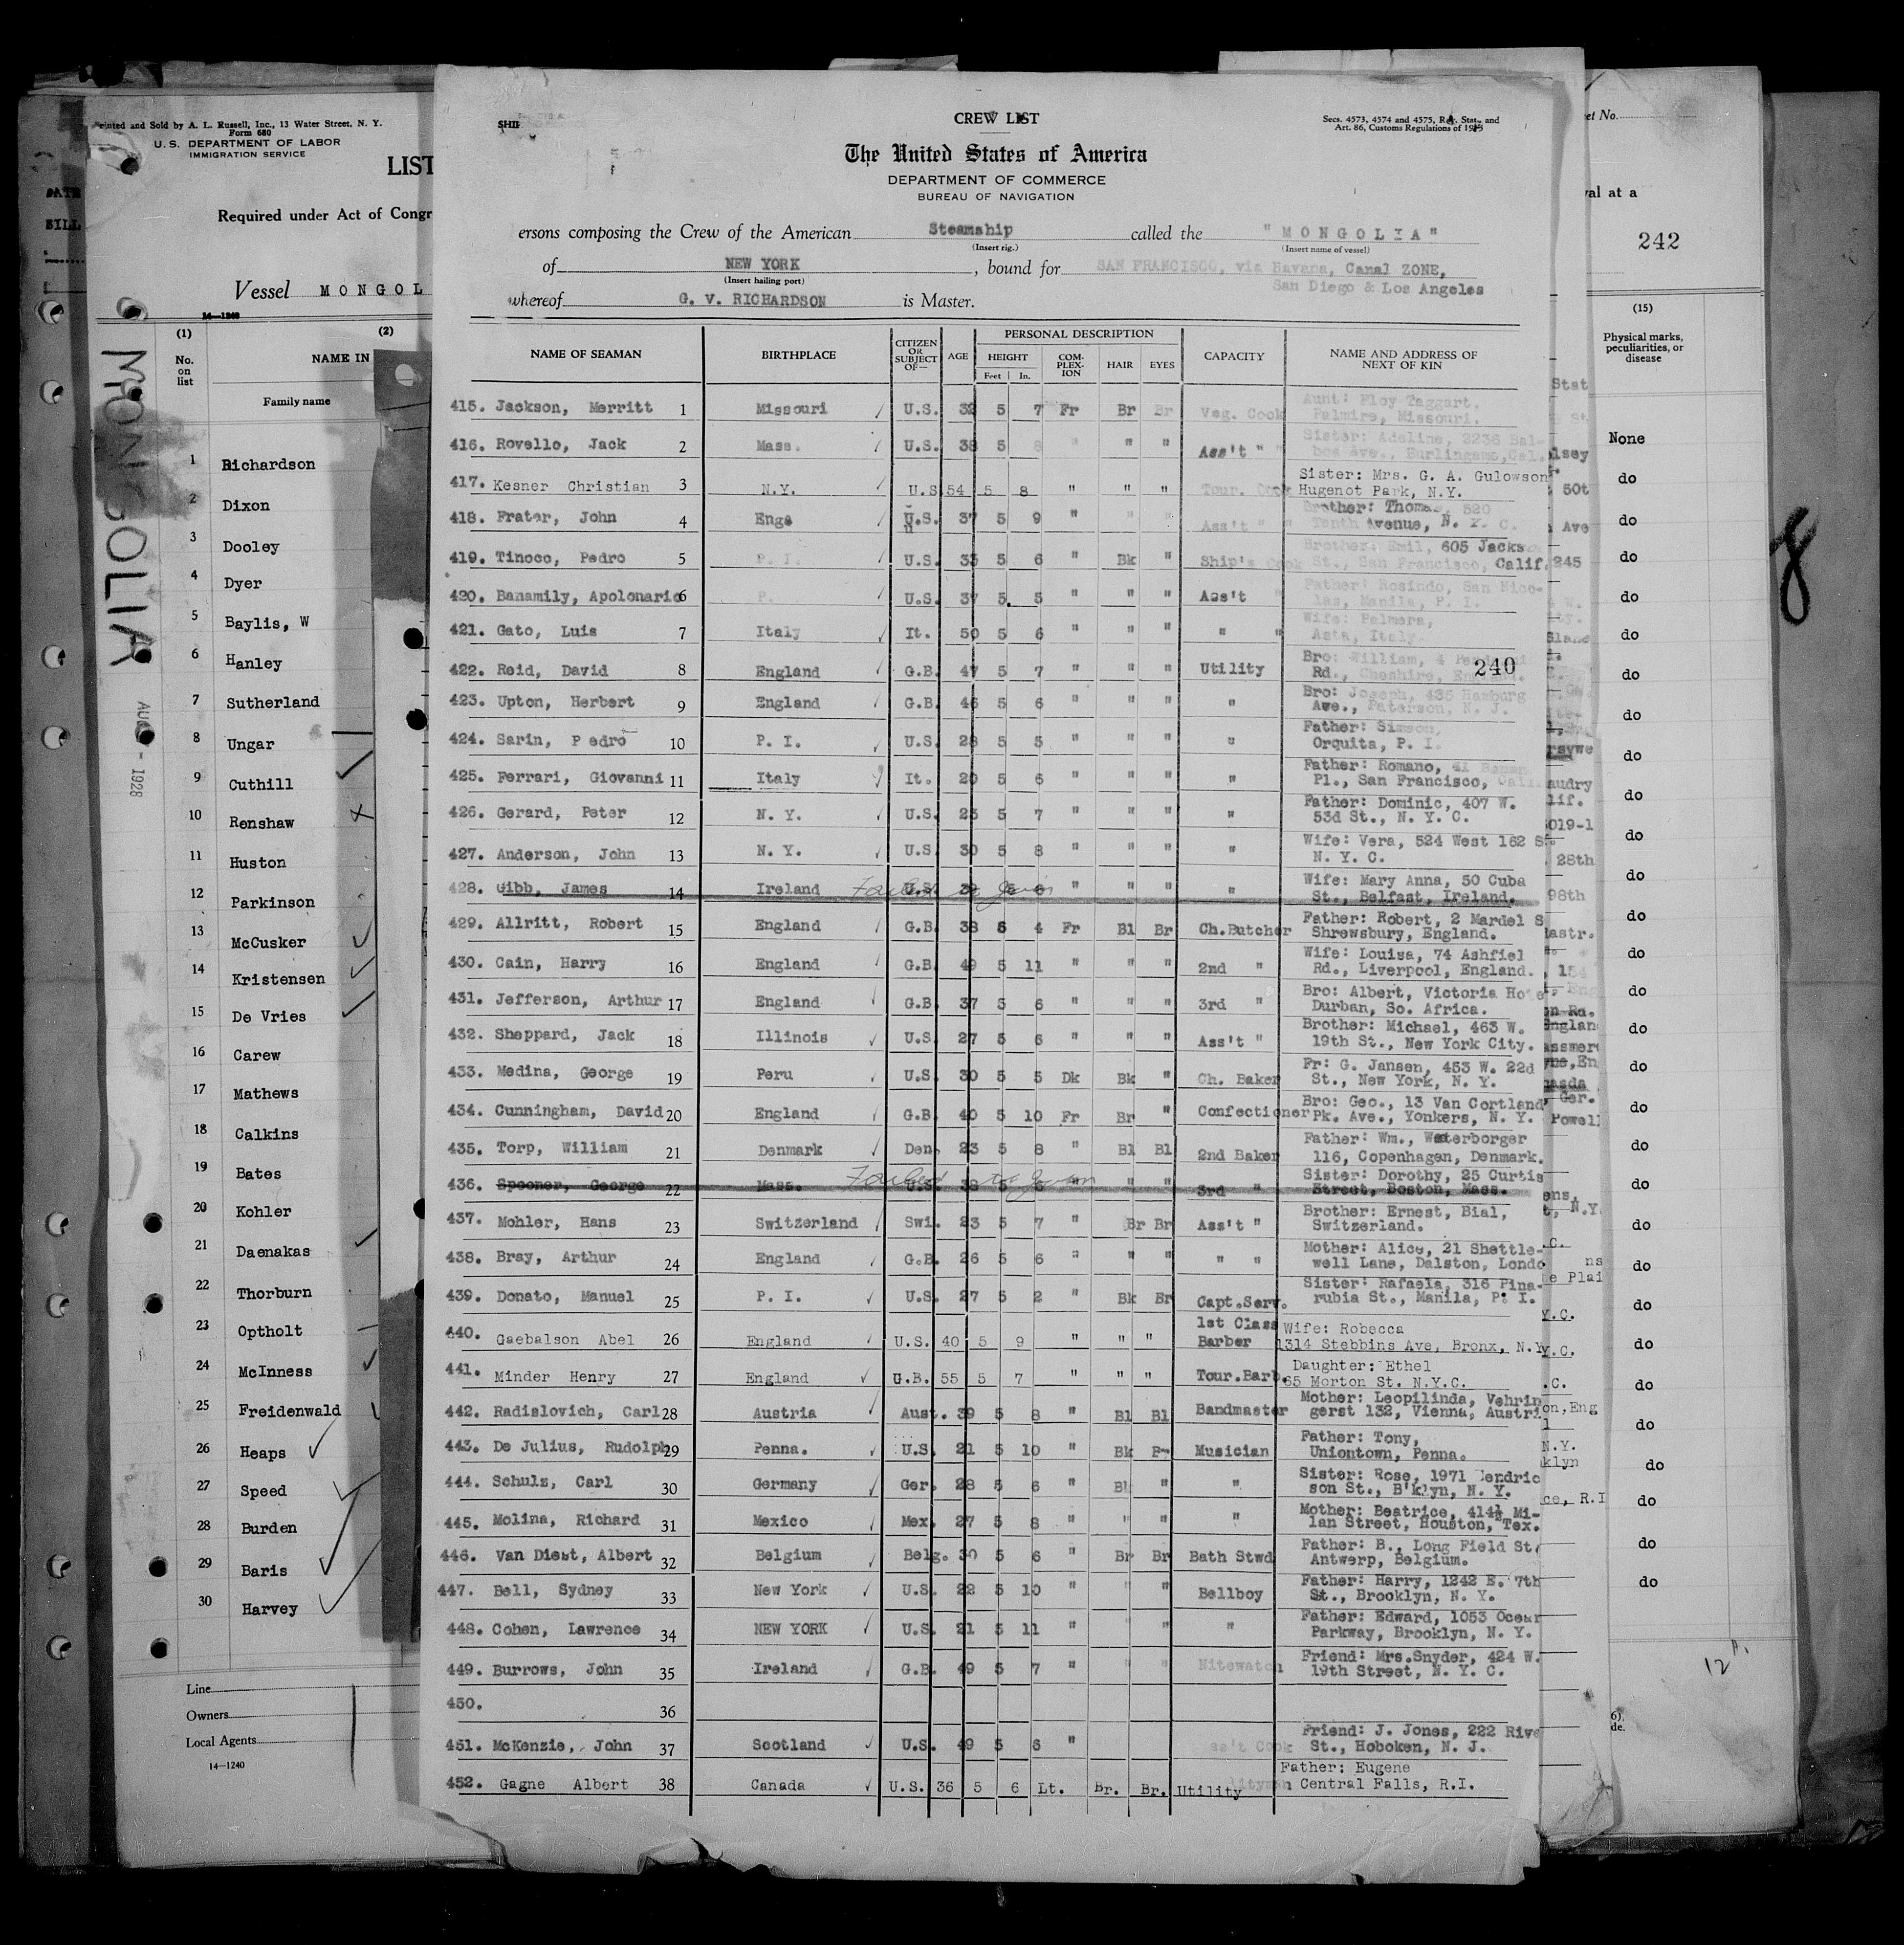 Printed and Sold by A. L. Russell, Inc., 13 Water Street, N. Y.
Form 680
U. S. DEPARTMENT OF LABOR
IMMIGRATION SERVICE
LIST
Required under Act of Congr
Vessel MONGOL
14—1240
(1) (2)
No. on list
NAME IN
Family name
MONGOLIA
1928
1 Richardson
2 Dixon
3 Dooley
4 Dyer
5 Baylis, W
6 Hanley
7 Sutherland
8 Ungar
9 Cuthill
10 Renshaw
11 Huston
12 Parkinson
13 McCusker
14 Kristensen
15 De Vries
16 Carew
17 Mathews
18 Calkins
19 Bates
20 Kohler
21 Daenakas
22 Thorburn
23 Optholt
24 McInness
25 Freidenwald
26 Heaps
27 Speed
28 Burden
29 Baris
30 Harvey
Line
Owners
Local Agents
14—1240
CREW LIST
Secs. 4573, 4574 and 4575, R. Stat. and
Art. 86, Customs Regulations of
The United States of America
DEPARTMENT OF COMMERCE
BUREAU OF NAVIGATION
ersons composing the Crew of the American Steamship called the "MONGOLIA"
(Insert rig.) (Insert name of vessel)
of NEW YORK, bound for SAN FRANCISCO, via Havana, Canal ZONE,
(Insert hailing port) San Diego & Los Angeles
whereof G. V. RICHARDSON is Master.
NAME OF SEAMAN BIRTHPLACE CITIZEN OR SUBJECT OF— AGE PERSONAL DESCRIPTION CAPACITY NAME AND ADDRESS OF NEXT OF KIN
HEIGHT COM-PLEX-ION HAIR EYES
Feet In.
415. Jackson, Merritt 1 Missouri U.S. 32 5 7 Fr Br Br Veg. Cook Aunt: Floy Taggart,
Palmira, Missouri.
416. Rovello, Jack 2 Mass. U.S. 38 5 8 " " " Ass't " " Sister: Adeline, 2236 Bal-
boa Ave., Burlingame, Cal.
417. Kesner Christian 3 N.Y. U.S. 54 5 8 " " " Tour. Cook Sister: Mrs. G. A. Gulowson
Hugenot Park, N.Y.
418. Frater, John 4 Eng. U.S. 37 5 9 " " " Ass't " " Brother: Thomas, 520
Tenth Avenue, N. Y. C.
419. Tinoco, Pedro 5 P. I. U.S. 33 5 6 " Bk " Ship's Cook Brother: Emil, 605 Jackson
St., San Francisco, Calif.
420. Banamily, Apolonario 6 P. U.S. 37 5 5 " " " Ass't " Father: Rosindo, San Nico-
las, Manila, P. I.
421. Gato, Luis 7 Italy It. 50 5 6 " " " " " Wife: Palmera,
Asta, Italy.
422. Reid, David 8 England G.B. 47 5 7 " " " Utility Bro: William, 4
Rd., Cheshire, England.
240
423. Upton, Herbert 9 England G.B. 46 5 6 " " " " Bro: Joseph, 435 Hamburg
Ave., Paterson, N. J.
424. Sarin, Pedro 10 P. I. U.S. 28 5 5 " " " " Father: Simeon,
Orquita, P. I.
425. Ferrari, Giovanni 11 Italy It. 20 5 6 " " " " Father: Romano, 41
Pl., San Francisco,
426. Gerard, Peter 12 N. Y. U.S. 23 5 7 " " " " Father: Dominic, 407 W.
53d St., N. Y. C.
427. Anderson, John 13 N. Y. U.S. 30 5 8 " " " " Wife: Vera, 524 West 162 S
N. Y. C.
428. Gibb, James 14 Ireland U.S. 39 5 6 " " " " Wife: Mary Anna, 50 Cuba
Failed to Join
St., Belfast, Ireland.
429. Allritt, Robert 15 England G.B. 38 6 4 Fr Bl Br Ch.Butcher Father: Robert, 2 Mardel S
Shrewsbury, England.
430. Cain, Harry 16 England G.B. 49 5 11 " " " 2nd " Wife: Louisa, 74 Ashfiel
Rd., Liverpool, England.
431. Jefferson, Arthur 17 England G.B. 37 5 6 " " " 3rd " Bro: Albert, Victoria Hote
Durban, So. Africa.
432. Sheppard, Jack 18 Illinois U.S. 27 5 6 " " " Ass't " Brother: Michael, 463 W.
19th St., New York City.
433. Medina, George 19 Peru U.S. 30 5 5 Dk Bk " Ch. Baker Fr: G. Jansen, 453 W. 22d
St., New York, N. Y.
434. Cunningham, David 20 England G.B. 40 5 10 Fr Br " Confectioner Bro: Geo., 13 Van Cortland
Pk. Ave., Yonkers, N. Y.
435. Torp, William 21 Denmark Den. 23 5 8 " Bl Bl 2nd Baker Father: Wm., Westerborger
116, Copenhagen, Denmark.
436. Spooner, George 22 Mass. U.S. 38 5 6 " " " 3rd " Sister: Dorothy, 25 Curtis
Failed to Join
Street, Boston, Mass.
437. Mohler, Hans 23 Switzerland Swi. 23 5 7 " Br Br Ass't " Brother: Ernest, Bial,
Switzerland.
438. Bray, Arthur 24 England G.B. 26 5 6 " " " " " Mother: Alice, 21 Shettle-
well Lane, Dalston, Londo
439. Donato, Manuel 25 P. I. U.S. 27 5 2 " Bk Br Capt.Serv. Sister: Rafaela, 316 Pina-
rubia St., Manila, P. I.
440. Gaebalson Abel 26 England U.S. 40 5 9 " " " 1st Class Barber Wife: Robecca
1314 Stebbins Ave, Bronx, N.Y
441. Minder Henry 27 England G.B. 55 5 7 " " " Tour.Barb. Daughter: Ethel
65 Morton St. N.Y.C.
442. Radislovich, Carl 28 Austria Aust. 39 5 8 " Bl Bl Bandmaster Mother: Leopilinda, Vehrin
gerst 132, Vienna, Austri
443. De Julius, Rudolph 29 Penna. U.S. 21 5 10 " Bk Br Musician Father: Tony,
Uniontown, Penna.
444. Schulz, Carl 30 Germany Ger. 28 5 6 " Bl " " Sister: Rose, 1971 Hendric
son St., B'klyn, N. Y.
445. Molina, Richard 31 Mexico Mex. 27 5 8 " " " " Mother: Beatrice, 414½ Mi-
lan Street, Houston, Tex.
446. Van Diest, Albert 32 Belgium Belg. 30 5 6 " Br Br Bath Stwd Father: B., Long Field St.
Antwerp, Belgium.
447. Bell, Sydney 33 New York U.S. 22 5 10 " " " Bellboy Father: Harry, 1242 E. 7th
St., Brooklyn, N. Y.
448. Cohen, Lawrence 34 NEW YORK U.S. 21 5 11 " " " " Father: Edward, 1053 Ocean
Parkway, Brooklyn, N. Y.
449. Burrows, John 35 Ireland G.B. 49 5 7 " " " Nitewatch Friend: Mrs.Snyder, 424 W.
19th Street, N. Y. C.
450. 36
451. McKenzie, John 37 Scotland U.S. 49 5 6 " Ass't Cook Friend: J. Jones, 222 Rive
St., Hoboken, N. J.
452. Gagne Albert 38 Canada U.S. 36 5 6 Lt. Br. Br. Utility Father: Eugene
Central Falls, R.I.
et No.
val at a
242
(15)
Physical marks, peculiarities, or disease
None
do
do
do
do
do
do
do
do
do
do
do
do
do
do
do
do
do
do
do
do
do
do
do
do
do
do
do
do
do
8